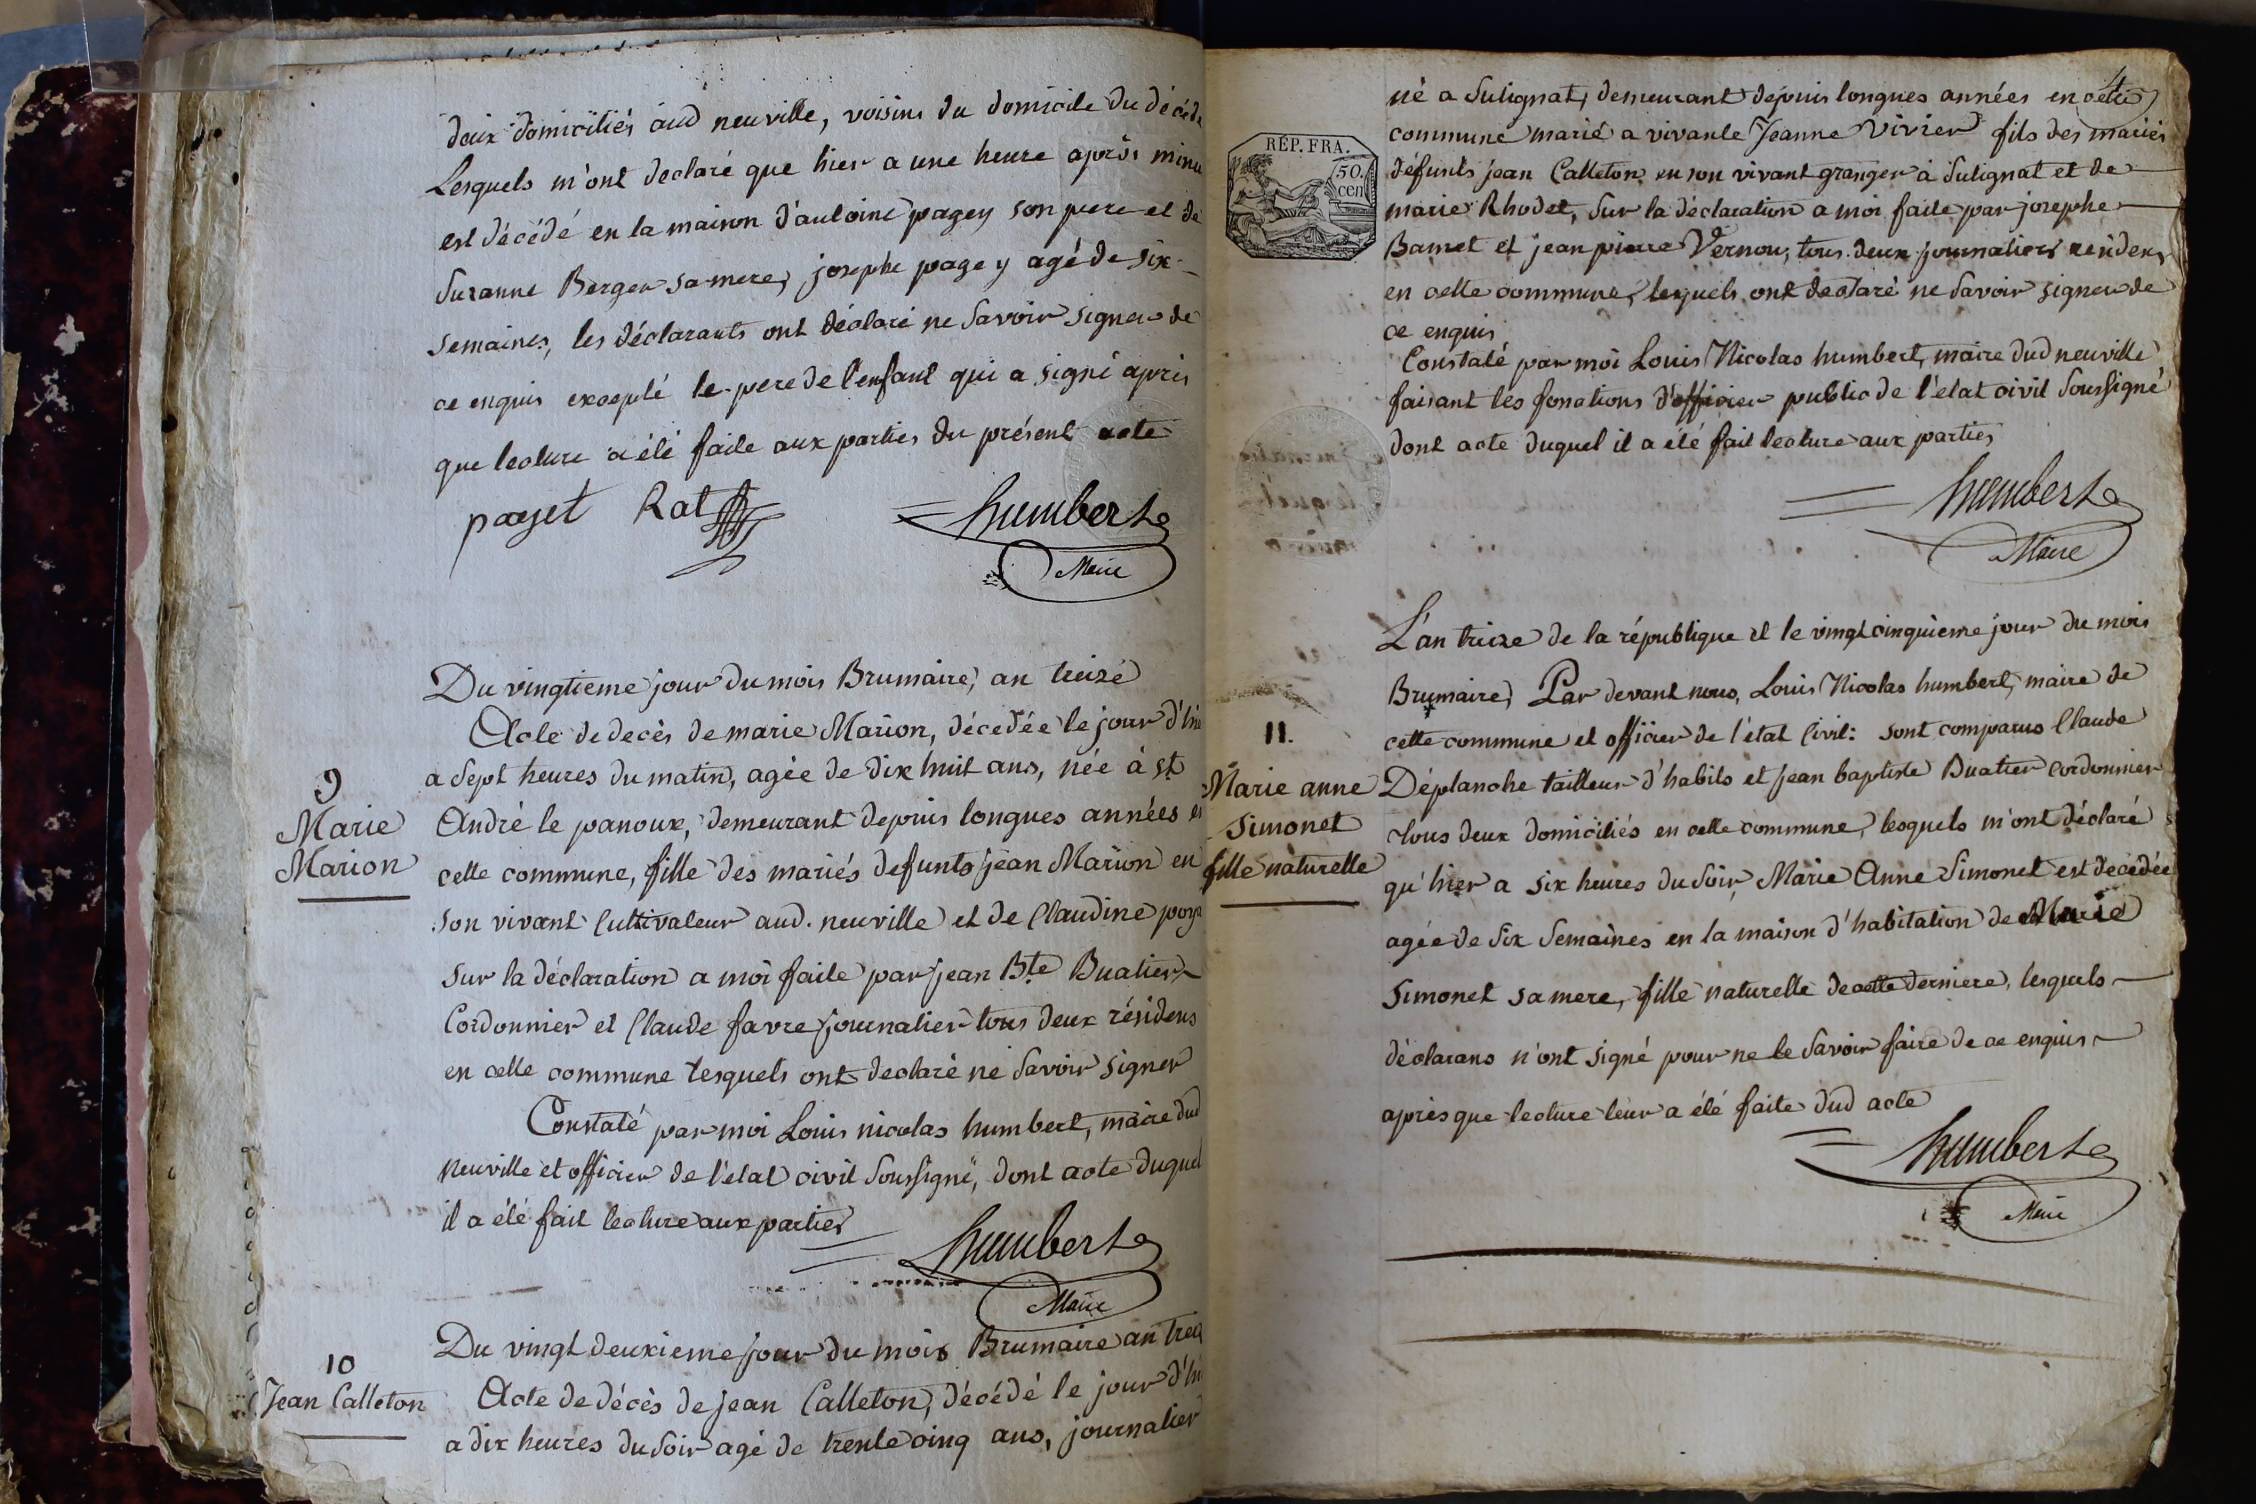 deux domiciliés aud neuville, voisins du domicile du décédé
Lesquels m'ont declaré que hier a une heure après minu
est décédé en la maison d'antoine pagey son pere et de
Suzanne Berger sa mere, josephe pagey agé de six
semaines, les déclarants ont déclaré ne Savoir signer de
ce enquis excepté le pere de l'enfant qui a signé après
que lecture a été faite aux parties du présent acte
paget Rat humbert
Maire
Du vingtieme jour du mois Brumaire, an treize
Acte de decès de marie Marion, décedée le jour d'hie
a Sept heures du matin, agée de dix huit ans, née à St
9
Marie
Marion
André le panoux, demeurant depuis longues années en
cette commune, fille des mariés defunts jean Marion en
son vivant Cultivateur aud. neuville et de Claudine
sur la déclaration a moi faite par jean Bte Buatier
Cordonnier et Claude favre journalier tous deux résidens
en cette commune lesquels ont declaré ne Savoir signer
Constaté par moi Louis nicolas humbert, maire dud
neuville et officier de l'etat civil Soussigné, dont acte duquel
il a été fait lecture aux parties
humbert
Maire
Du vingt deuxieme jour du mois Brumaire an treiz
10
Jean Calleton
Acte de décès de jean Calleton, décédé le jour d'hi
a dix heures du Soir agé de trente cinq ans, journalier
4
né a Sulignat, demeurant depuis longues années en cette
commune marié a vivante Jeanne Vivier fils des mariés
RÉP. FRA.
50.
cen
défunts jean Calleton en son vivant granger à Sulignat et de
marie Rhodet, Sur la déclaration a moi faite par josephe
Bamet et jean pierre Vernou, tous deux journaliers residens
en cette commune, lesquels ont declaré ne Savoir signer de
ce enquis
Constaté par moi Louis Nicolas humbert, maire dud neuville
faisant les fonctions d'officier public de l'etat civil Soussigné
dont acte duquel il a été fait lecture aux parties
humbert
Maire
L'an treize de la république et le vingt cinquieme jour du mois
Brumaire, Par devant nous, Louis Nicolas humbert, maire de
cette commune et officier de l'état Civil: sont comparus Claude
11.
Marie anne
Simonet
fille naturelle
Déplanche tailleur d'habits et jean baptiste Buatier cordonnier
tous deux domiciliés en cette commune, lesquels m'ont déclaré
qu'hier a six heures du Soir, Marie Anne Simonet est decédée
agée de Six Semaines en la maison d'habitation de Marie
Simonet sa mere, fille naturelle de cette derniere, lesquels
déclarans n'ont signé pour ne le Savoir faire de ce enquis
après que lecture leur a été faite dud acte
humbert
Maire